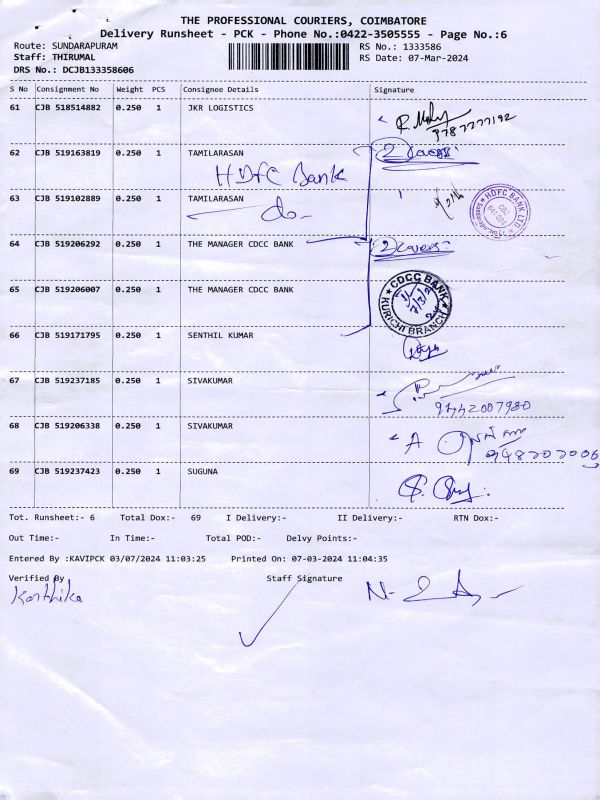 THE PROFESSIONAL COURIERS, COIMBATORE
Delivery Runsheet - PCK - Phone No.:0422-3505555 - Page No.:6
Route: SUNDARAPURAM
RS No.: 1333586
Staff: THIRUMAL
RS Date: 07-Mar-2024
DRS No.: DCJB133358606
S No Consignment No Weight PCS Consignee Details Signature
61 CJB 518514882 0.250 1 JKR LOGISTICS
9787277192
62 CJB 519163819 0.250 1 TAMILARASAN
2 covers:
HDFC Bank
63 CJB 519102889 0.250 1 TAMILARASAN
do-
HDFC BANK LTD
64 CJB 519206292 0.250 1 THE MANAGER CDCC BANK
2 covers:
65 CJB 519206007 0.250 1 THE MANAGER CDCC BANK
CDCC BANK
KURICHI BRANCH
66 CJB 519171795 0.250 1 SENTHIL KUMAR
67 CJB 519237185 0.250 1 SIVAKUMAR
9442007980
68 CJB 519206338 0.250 1 SIVAKUMAR
69 CJB 519237423 0.250 1 SUGUNA
Tot. Runsheet:- 6 Total Dox:- 69 I Delivery:- II Delivery:- RTN Dox:-
Out Time:- In Time:- Total POD:- Delvy Points:-
Entered By :KAVIPCK 03/07/2024 11:03:25 Printed On: 07-03-2024 11:04:35
Verified By Staff Signature
Karthika